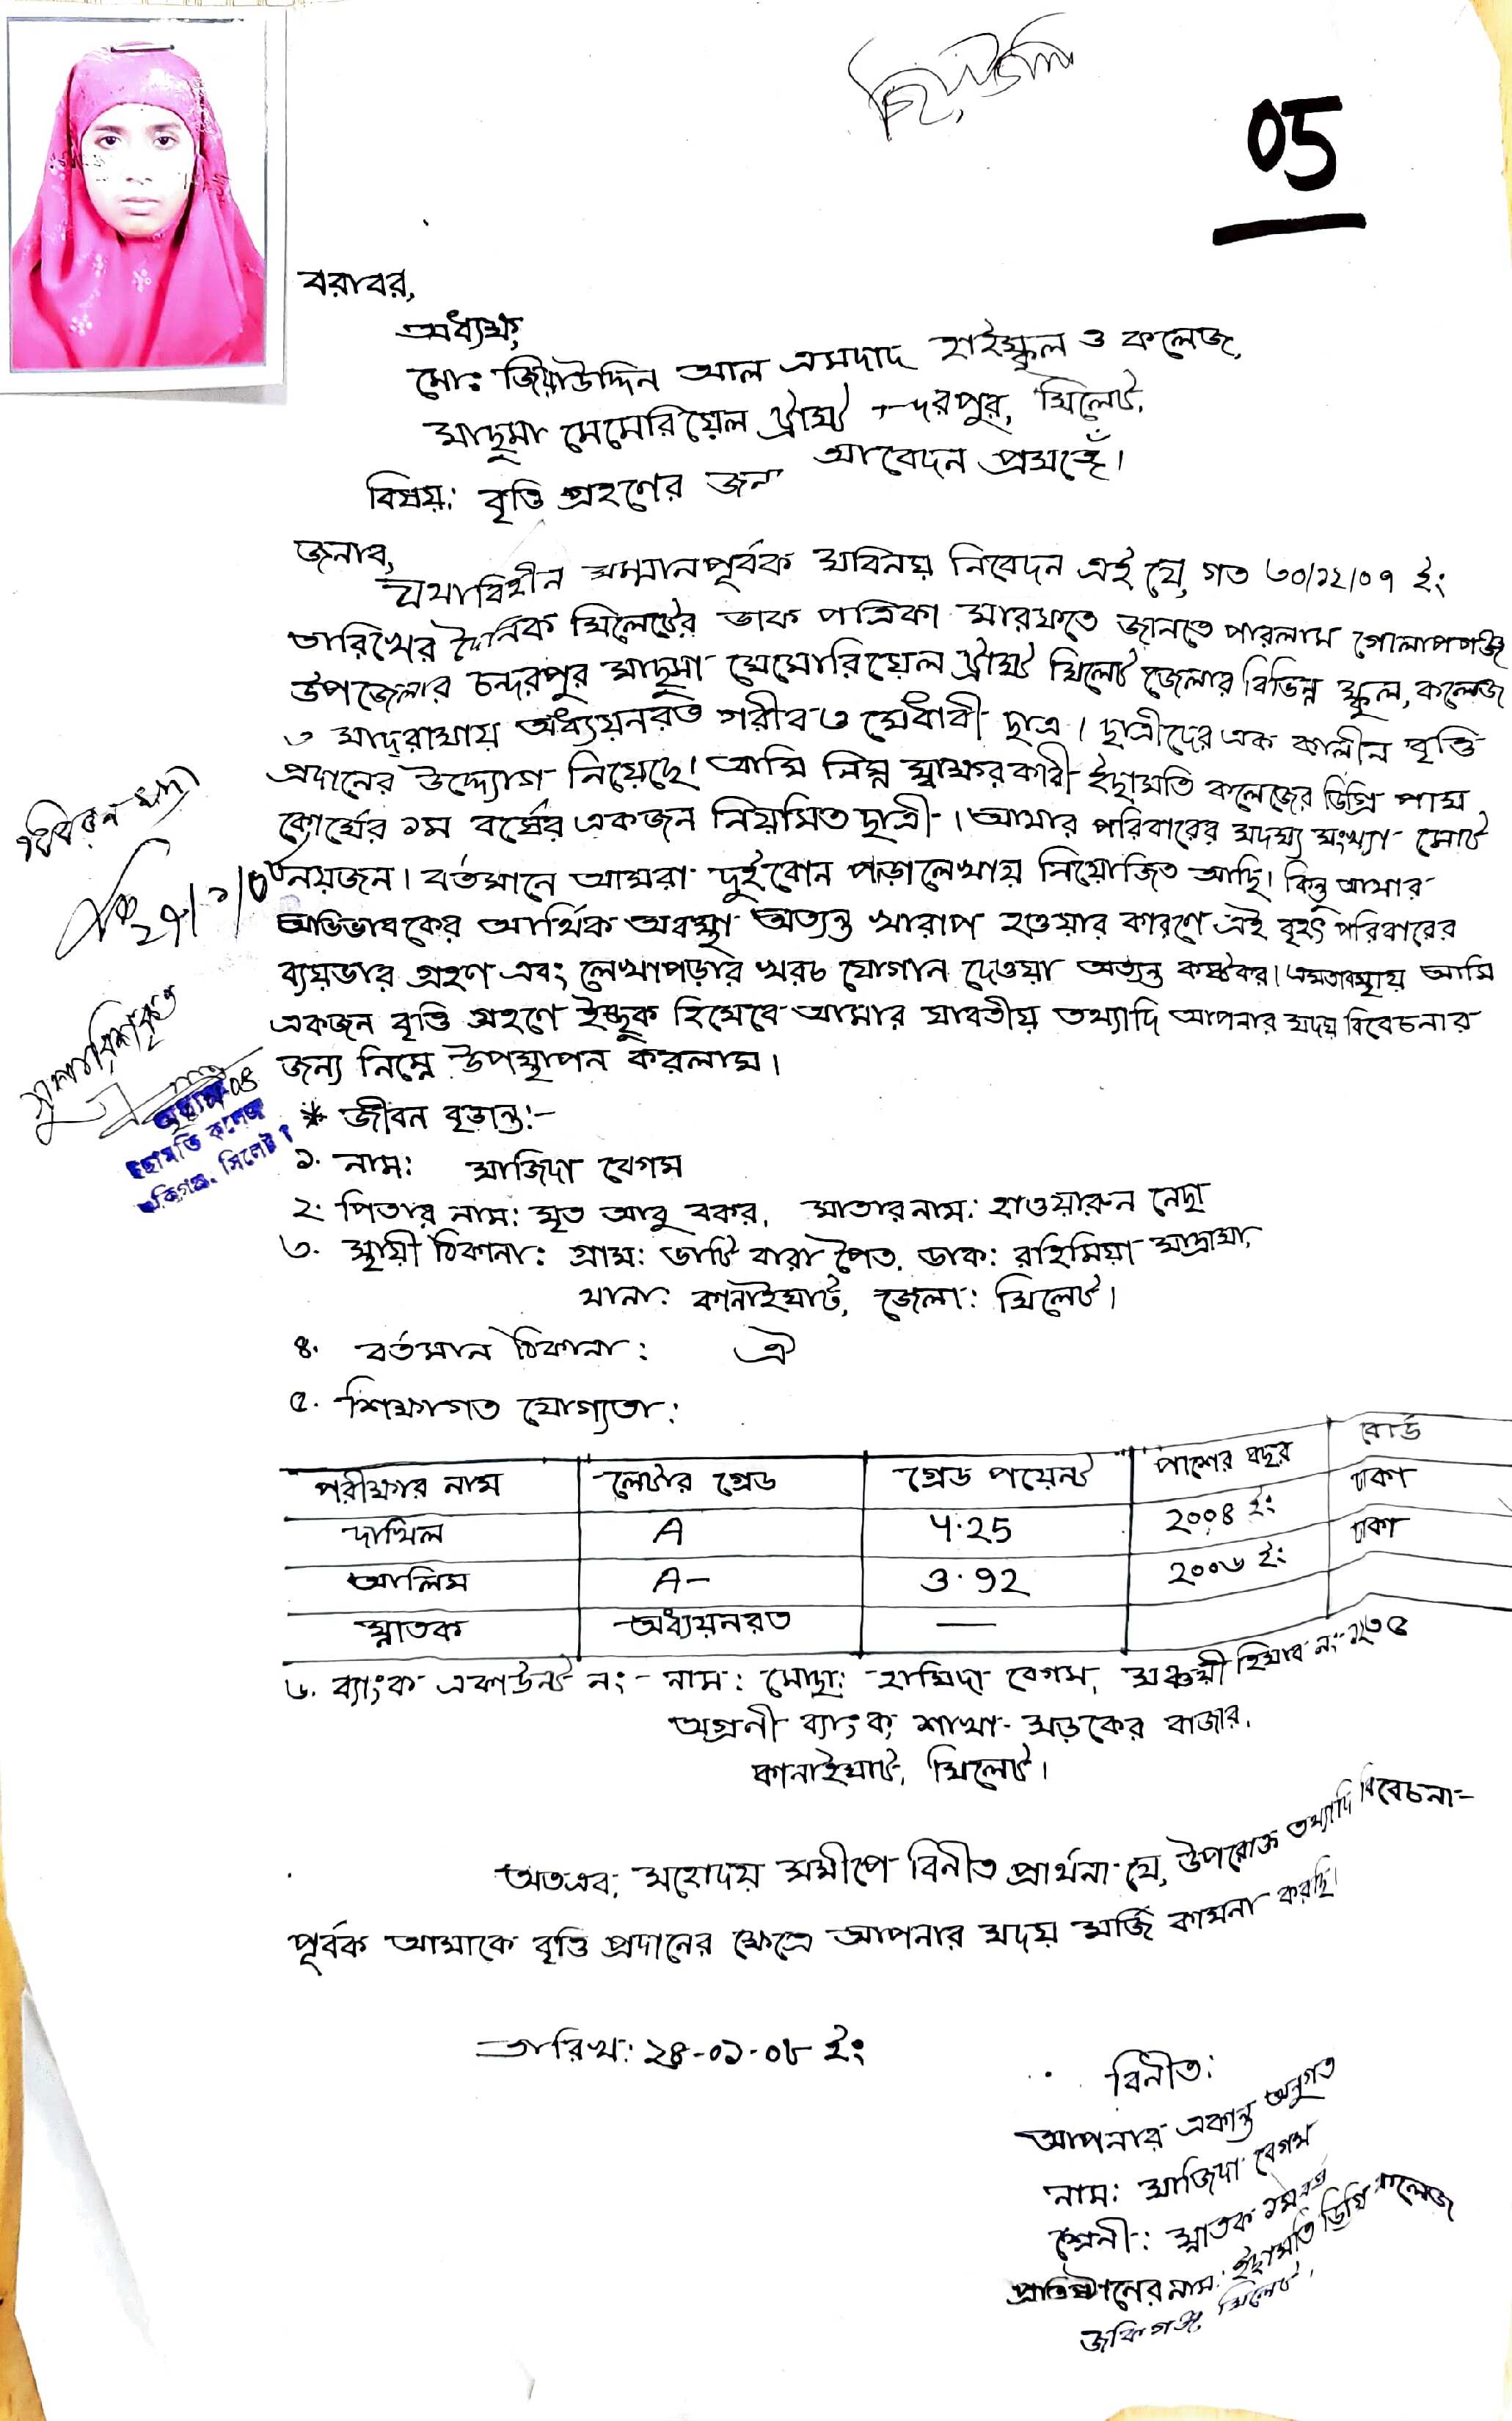 05
বরাবর,
অধ্যক্ষ,
মো: জিয়াউদ্দিন আল এমদাদ হাইস্কুল ও কলেজ,
মাছুমা মেমোরিয়েল ট্রাস্ট চন্দরপুর, সিলেট,
বিষয়: বৃত্তি গ্রহণের জন্য আবেদন প্রসঙ্গে।
জনাব,
যথাবিহীন সম্মানপূর্বক সবিনয় নিবেদন এই যে, গত ৩০/১২/০৭ ইং
তারিখের দৈনিক সিলেটের ডাক পত্রিকা মারফতে জানতে পারলাম গোলাপগঞ্জ
উপজেলার চন্দরপুর মাছুমা মেমোরিয়েল ট্রাস্ট সিলেট জেলার বিভিন্ন স্কুল, কলেজ
ও মাদ্রাসায় অধ্যয়নরত গরীব ও মেধাবী ছাত্র। ছাত্রীদের এক কালীন বৃত্তি
প্রদানের উদ্দ্যোগ নিয়েছে। আমি নিম্ন স্বাক্ষরকারী ইছামতি কলেজের ডিগ্রি পাস
কোর্সের ১ম বর্ষের একজন নিয়মিত ছাত্রী। আমার পরিবারের সদস্য সংখ্যা মোট
নয়জন। বর্তমানে আমরা দুইবোন পড়ালেখায় নিয়োজিত আছি। কিন্তু আমার
অভিভাবকের আর্থিক অবস্থা অত্যন্ত খারাপ হওয়ার কারণে এই বৃহৎ পরিবারের
ব্যয়ভার গ্রহণ এবং লেখাপড়ার খরচ যোগান দেওয়া অত্যন্ত কষ্টকর। এমতাবস্থায় আমি
একজন বৃত্তি গ্রহণে ইচ্ছুক হিসেবে আমার যাবতীয় তথ্যাদি আপনার সদয় বিবেচনার
জন্য নিম্নে উপস্থাপন করলাম।
* জীবন বৃত্তান্ত:-
১. নাম: মাজিদা বেগম
২. পিতার নাম: মৃত আবু বকর, মাতার নাম: হাওয়ারুন নেছা
৩. স্থায়ী ঠিকানা: গ্রাম: ভাটি বারা পৈত, ডাক: রহিমিয়া মাদ্রাসা,
থানা: কানাইঘাট, জেলা: সিলেট।
৪. বর্তমান ঠিকানা: ঐ
৫. শিক্ষাগত যোগ্যতা:
পরীক্ষার নাম লেটার গ্রেড গ্রেড পয়েন্ট পাশের বছর বোর্ড
দাখিল A 4.25 ২০০৪ ইং ঢাকা
আলিম A- 3.92 ২০০৬ ইং ঢাকা
স্নাতক অধ্যয়নরত —
৬. ব্যাংক একাউন্ট নং - নাম: মোছা: হামিদা বেগম, সঞ্চয়ী হিসাব নং-
অগ্রনী ব্যাংক, শাখা- সড়কের বাজার,
কানাইঘাট, সিলেট।
অতএব, মহোদয় সমীপে বিনীত প্রার্থনা যে, উপরোক্ত তথ্যাদি বিবেচনা-
পূর্বক আমাকে বৃত্তি প্রদানের ক্ষেত্রে আপনার সদয় মর্জি কামনা করছি।
তারিখ: ২৪-০১-০৮ ইং
বিনীত:
আপনার একান্ত অনুগত
নাম: মাজিদা বেগম
শ্রেনী: স্নাতক ১ম বর্ষ
প্রতিষ্ঠানের নাম: ইছামতি ডিগ্রি কলেজ
জকিগঞ্জ, সিলেট।
বিবরন সত্য
সুপারিশকৃত
অধ্যক্ষ
ইছামতি কলেজ
জকিগঞ্জ, সিলেট।